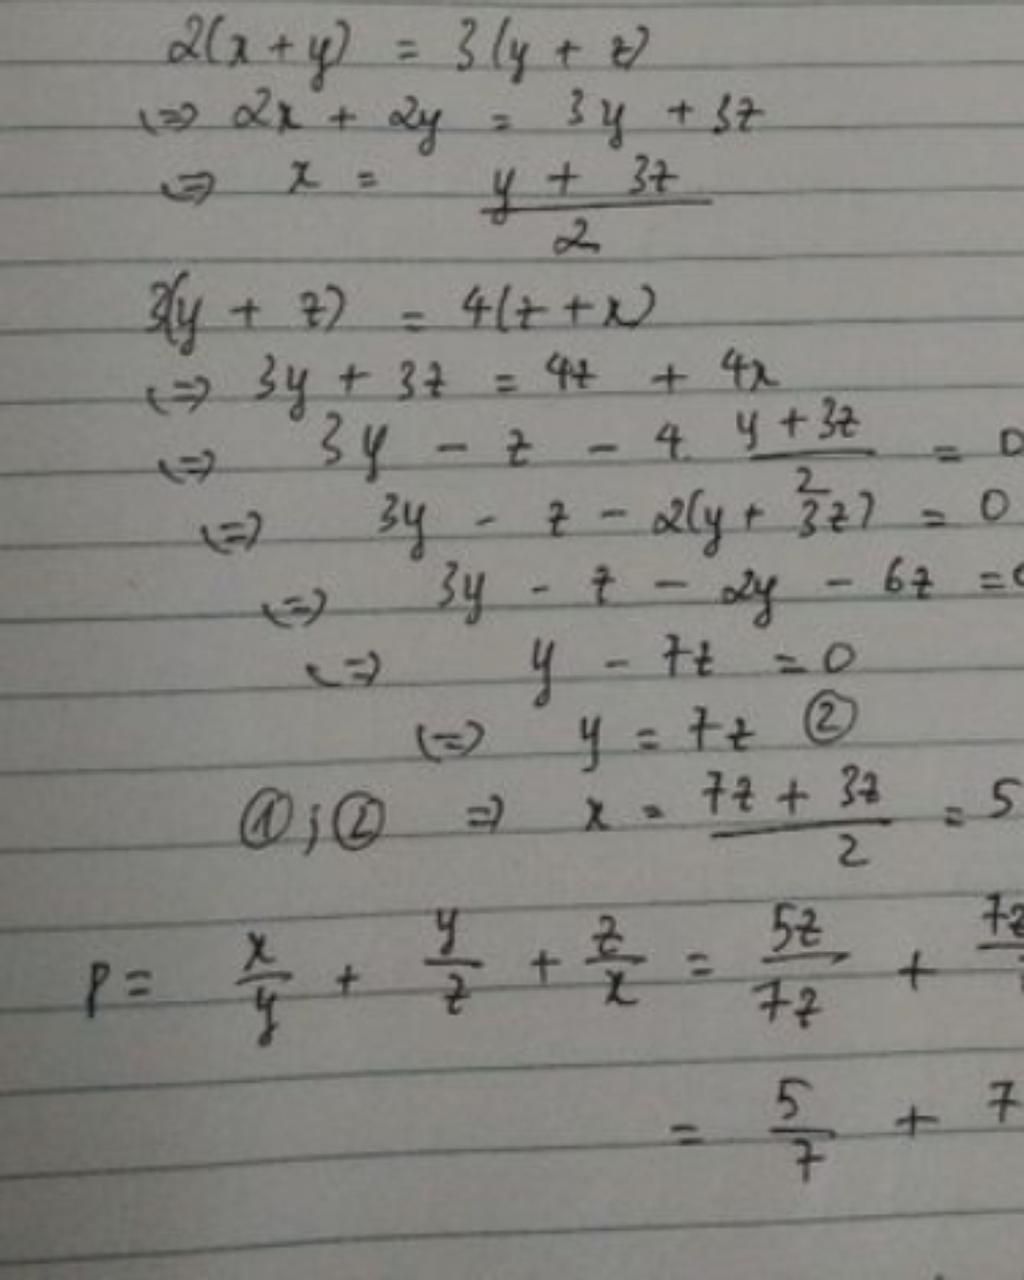 2(x + y) = 3(y + z)
<=> 2x + 2y = 3y + 3z
<=> x = (y + 3z)/2
3(y + z) = 4(z + x)
<=> 3y + 3z = 4z + 4x
<=> 3y - z - 4. (y + 3z)/2 = 0
<=> 3y - z - 2(y + 3z) = 0
<=> 3y - z - 2y - 6z = 0
<=> y - 7z = 0
<=> y = 7z ②
① ; ② => x = (7z + 3z)/2 = 5
P = x/y + y/z + z/x = 5z/7z + 7z
= 5/7 + 7